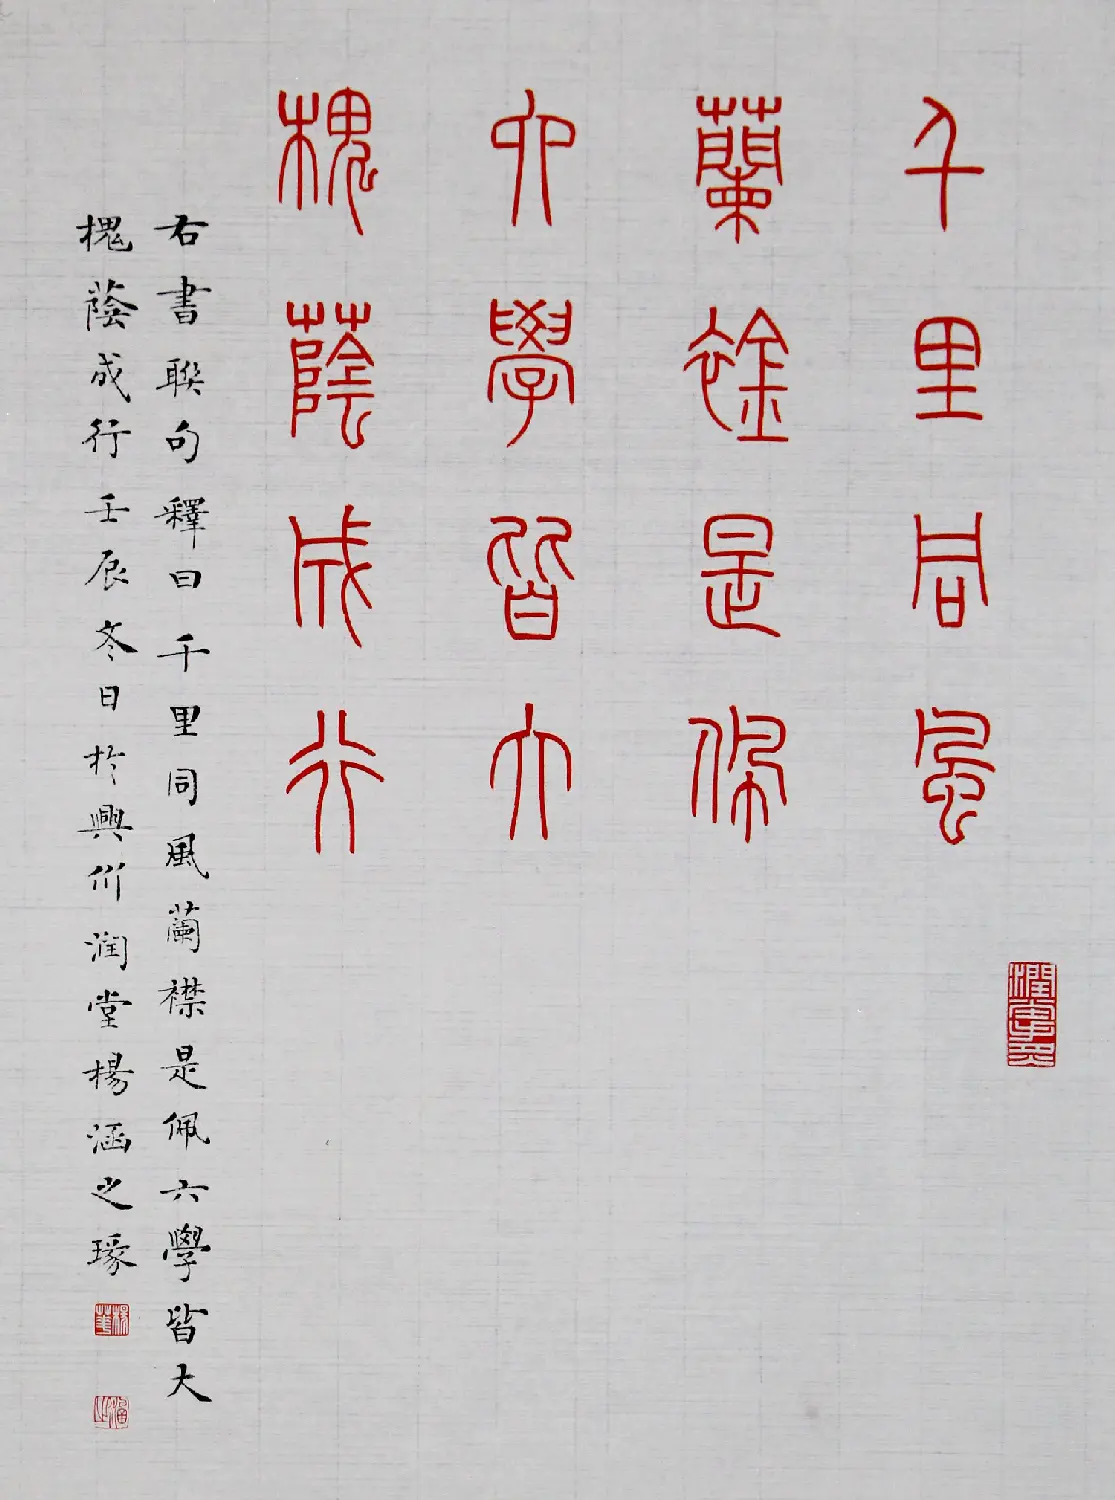 千里同風
蘭襟是佩
六學皆大
槐蔭成行
右書聯句釋曰千里同風蘭襟是佩六學皆大
槐蔭成行壬辰冬日於興州潤堂楊涵之琢